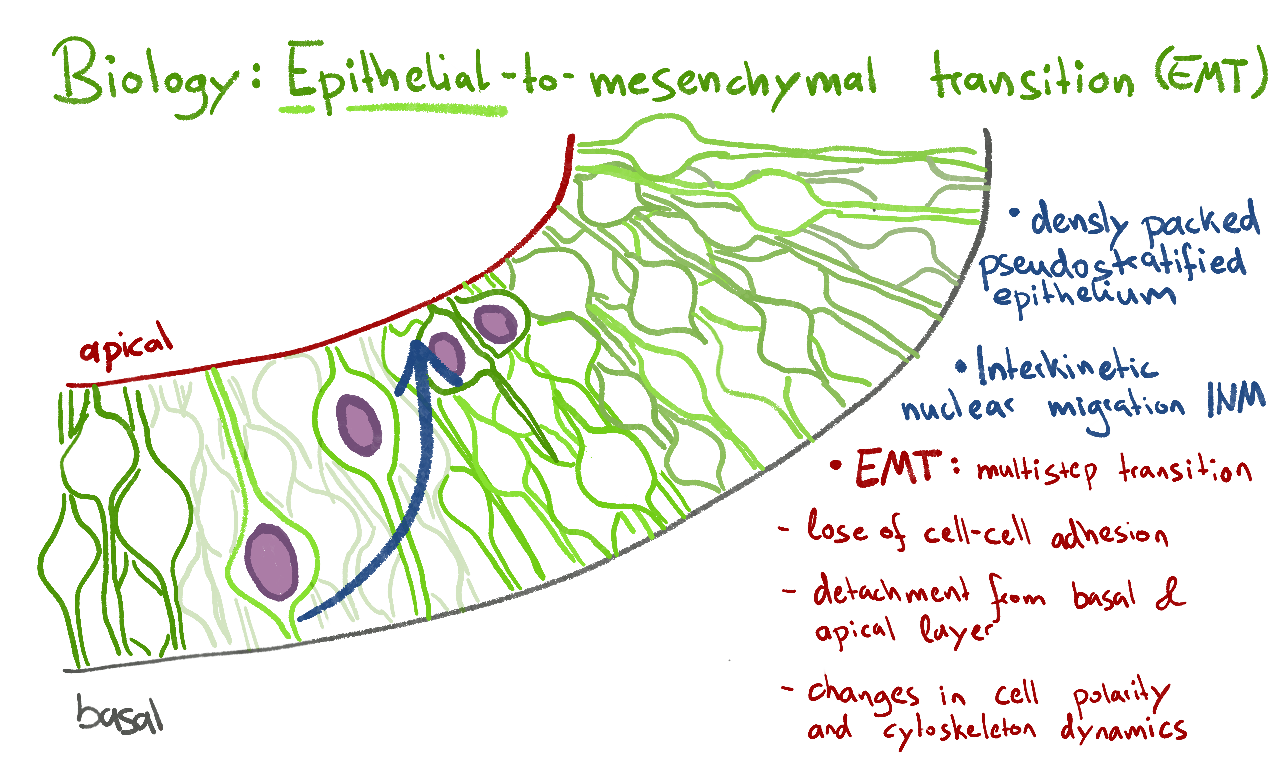 Biology: Epithelial-to-mesenchymal transition (EMT)
apical
basal
• densly packed
pseudostratified
epithelium
• Interkinetic
nuclear migration INM
• EMT: multistep transition
- lose of cell-cell adhesion
- detachment from basal &
apical layer
- changes in cell polarity
and cyloskeleton dynamics